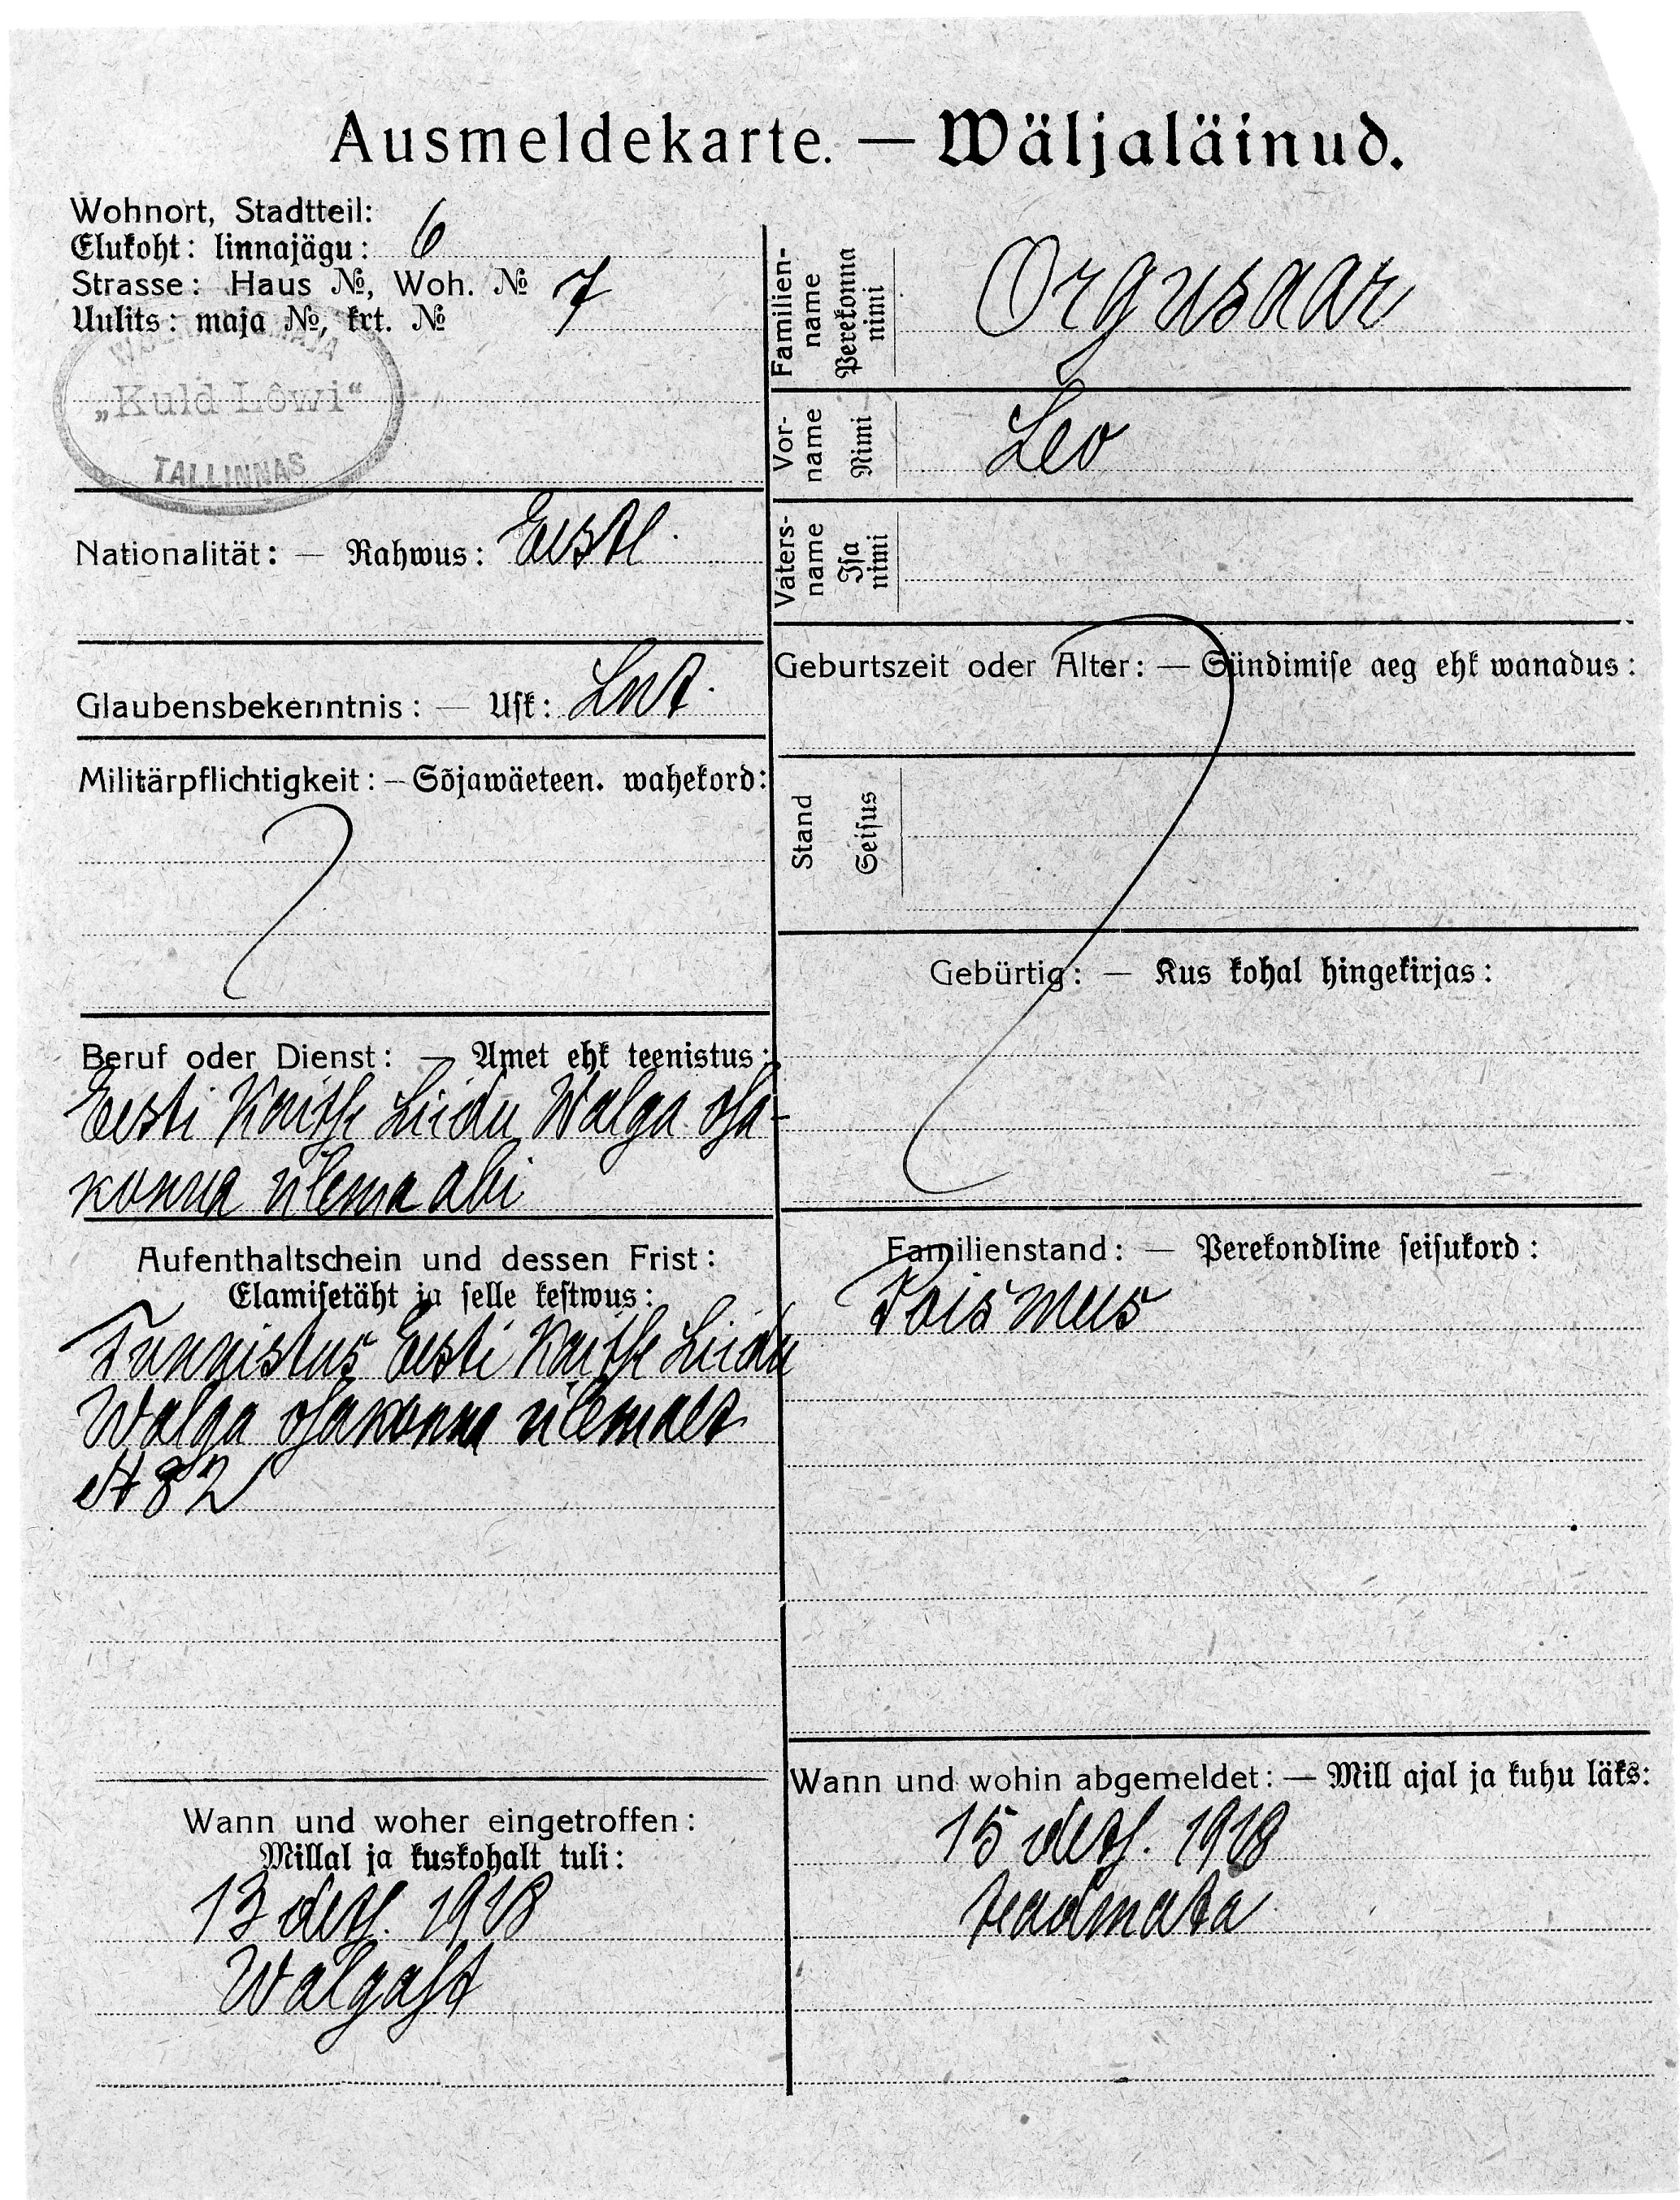 Ausmeldekarte. — Wäljaläinud.
Wohnort, Stadtteil: 6
Elukoht: linnajägu:
Strasse: Haus №, Woh. № 7
Uulits: maja №, krt. №
„Kuld Lôwi“
TALLINNAS
Familien-name Perekonna nimi Orgusaar
Vor-name Nimi Leo
Vaters-name Isa nimi
Nationalität: — Rahwus: Eestl.
Glaubensbekenntnis: — Usk: Lut.
Militärpflichtigkeit: — Sõjawäeteen. wahekord:
Geburtszeit oder Alter: — Sündimise aeg ehk wanadus:
Stand Seisus
Gebürtig: — Kus kohal hingekirjas:
Beruf oder Dienst: — Amet ehk teenistus:
Eesti Kaitse Liidu Walga osa-
konna ülema abi
Aufenthaltschein und dessen Frist:
Elamisetäht ja selle kestwus:
Tunnistus Eesti Kaitse Liidu
Walga osakonna ülemalt
№ 82
Familienstand: — Perekondline seisukord:
Poismees
Wann und woher eingetroffen:
Millal ja kuskohalt tuli:
13 dets. 1918
Walgast
Wann und wohin abgemeldet: — Mill ajal ja kuhu läks:
15 dets. 1918
teadmata